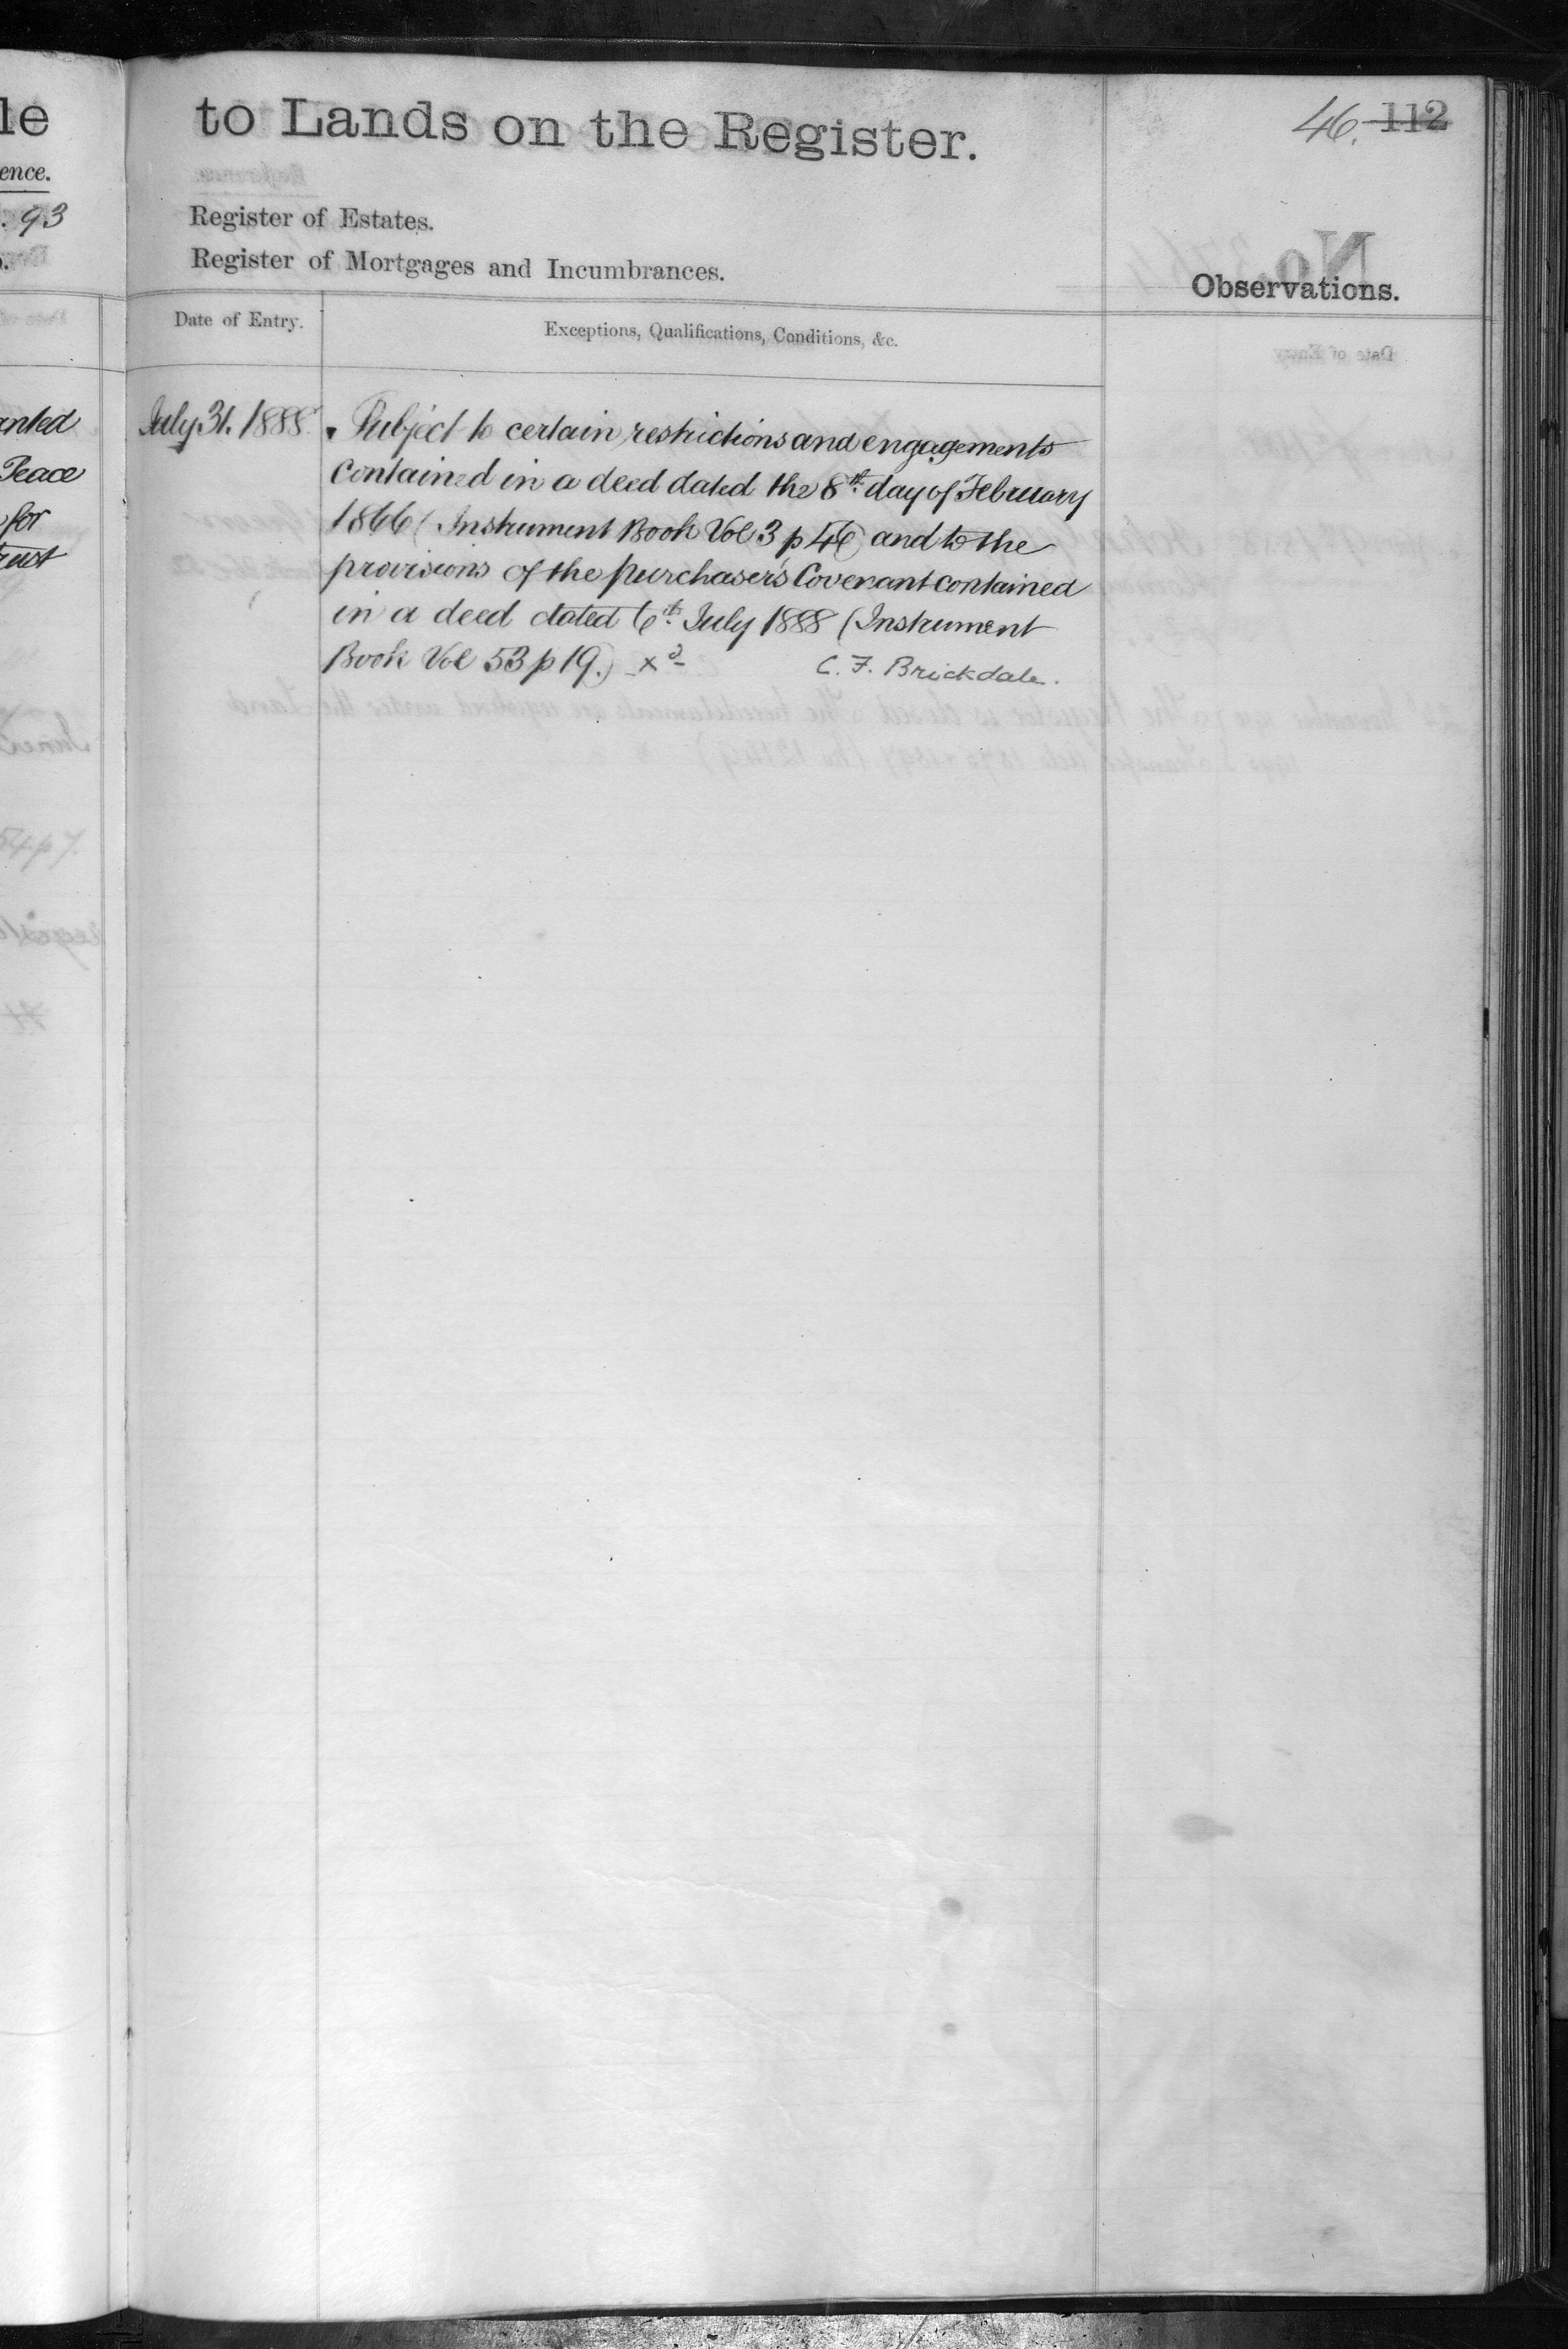 le
ence.
. 93
anted
Peace
for
rust
to Lands on the Register.
46. 112
Register of Estates.
Register of Mortgages and Incumbrances.
Observations.
Date of Entry.
Exceptions, Qualifications, Conditions, &c.
July 31. 1888. Subject to certain restrictions and engagements
contained in a deed dated the 8th. day of February
1866 (Instrument Book Vol 3 p 46) and to the
provisions of the purchaser's Covenant contained
in a deed dated 6th. July 1888 (Instrument
Book Vol 53 p 19.) C. F. Brickdale.